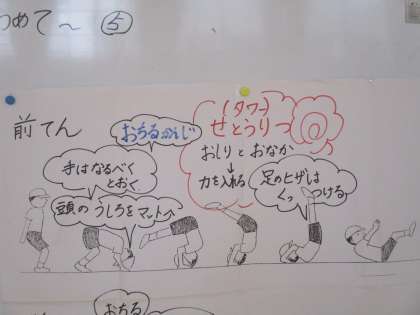 つめて〜 ⑤
前てん
おちるかんじ
(タワー)
せとうりつ
おしりとおなか
↓
力を入れる
手はなるべく
とおく
頭のうしろをマットへ
足のヒザは
くっつける
おちる